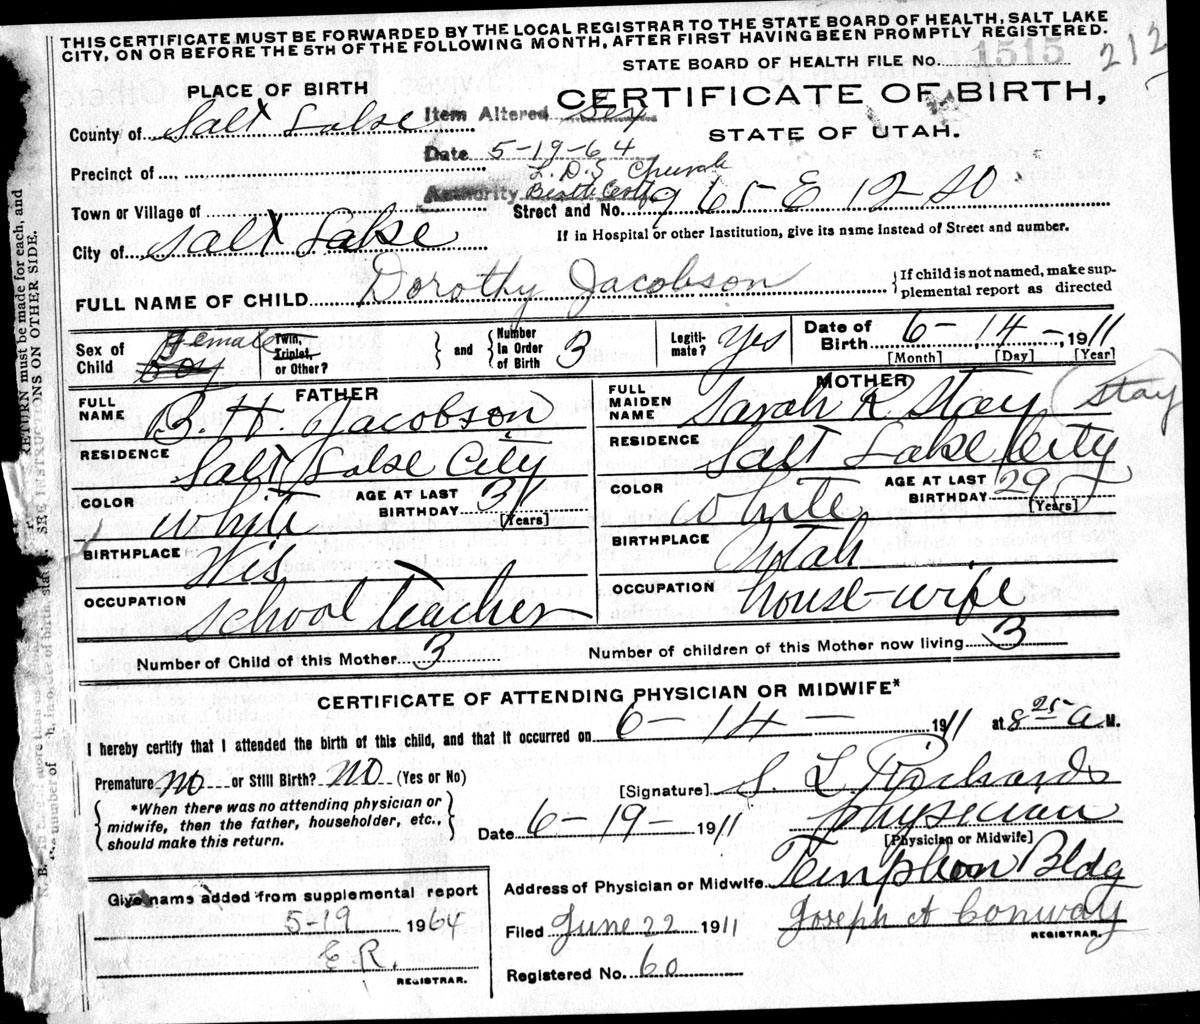 THIS CERTIFICATE MUST BE FORWARDED BY THE LOCAL REGISTRAR TO THE STATE BOARD OF HEALTH, SALT LAKE
CITY, ON OR BEFORE THE 5TH OF THE FOLLOWING MONTH, AFTER FIRST HAVING BEEN PROMPTLY REGISTERED.
STATE BOARD OF HEALTH FILE No. 1515
212
PLACE OF BIRTH
CERTIFICATE OF BIRTH,
STATE OF UTAH.
County of Salt Lake
Item Altered Sex
Date 5-19-64
Precinct of
Authority L.D.S. Church
Birth Certf
Town or Village of
Street and No. 965 E 12-So
City of Salt Lake
If in Hospital or other Institution, give its name instead of Street and number.
FULL NAME OF CHILD Dorothy Jacobson
If child is not named, make sup-
plemental report as directed
Sex of Child Female boy
Twin, Triplet, or Other?
and
Number in Order of Birth 3
Legiti-mate? Yes
Date of Birth 6-14-, 1911
[Month] [Day] [Year]
FATHER
FULL NAME B. H. Jacobson
RESIDENCE Salt Lake City
COLOR White
AGE AT LAST BIRTHDAY 31
[Years]
BIRTHPLACE Wis
OCCUPATION School teacher
MOTHER
FULL MAIDEN NAME Sarah R. Stay (Stay)
RESIDENCE Salt Lake City
COLOR White
AGE AT LAST BIRTHDAY 29
[Years]
BIRTHPLACE Utah
OCCUPATION house-wife
Number of Child of this Mother 3
Number of children of this Mother now living 3
CERTIFICATE OF ATTENDING PHYSICIAN OR MIDWIFE*
I hereby certify that I attended the birth of this child, and that it occurred on 6-14- 1911 at 8 25 a M.
Premature no or Still Birth? no (Yes or No)
[Signature] S. L. Richards
*When there was no attending physician or
midwife, then the father, householder, etc.,
should make this return.
Date 6-19- 1911
physician
[Physician or Midwife]
Address of Physician or Midwife Templeton Bldg
Give name added from supplemental report
5-19 1964
E.R.
REGISTRAR.
Filed June 22 1911
Joseph A Conway
REGISTRAR.
Registered No. 60
RETURN must be made for each, and
SEE INSTRUCTIONS ON OTHER SIDE.